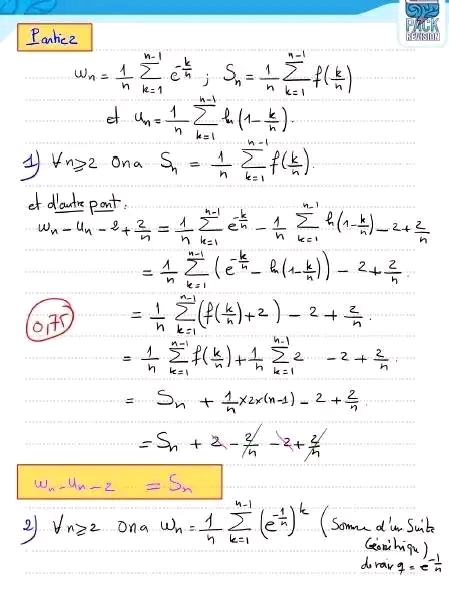 PACK
REVISION
Partie 2
wn = 1/n ∑_{k=1}^{n-1} e^{-k/n} ; Sn = 1/n ∑_{k=1}^{n-1} f(k/n)
et un = 1/n ∑_{k=1}^{n-1} ln(1-k/n).
1) ∀n≥2 ona Sn = 1/n ∑_{k=1}^{n-1} f(k/n).
et d'autre part:
wn - un - 2 + 2/n = 1/n ∑_{k=1}^{n-1} e^{-k/n} - 1/n ∑_{k=1}^{n-1} ln(1-k/n) - 2 + 2/n
= 1/n ∑_{k=1}^{n-1} (e^{-k/n} - ln(1-k/n)) - 2 + 2/n.
0,75
= 1/n ∑_{k=1}^{n-1} (f(k/n)+2) - 2 + 2/n
= 1/n ∑_{k=1}^{n-1} f(k/n) + 1/n ∑_{k=1}^{n-1} 2 - 2 + 2/n.
= Sn + 1/n × 2 × (n-1) - 2 + 2/n.
= Sn + 2 - 2/n - 2 + 2/n
wn - un - 2 = Sn
2) ∀n≥2 ona wn = 1/n ∑_{k=1}^{n-1} (e^{-1/n})^k (Somme d'un Suite
Géométrique)
de rai q = e^{-1/n}